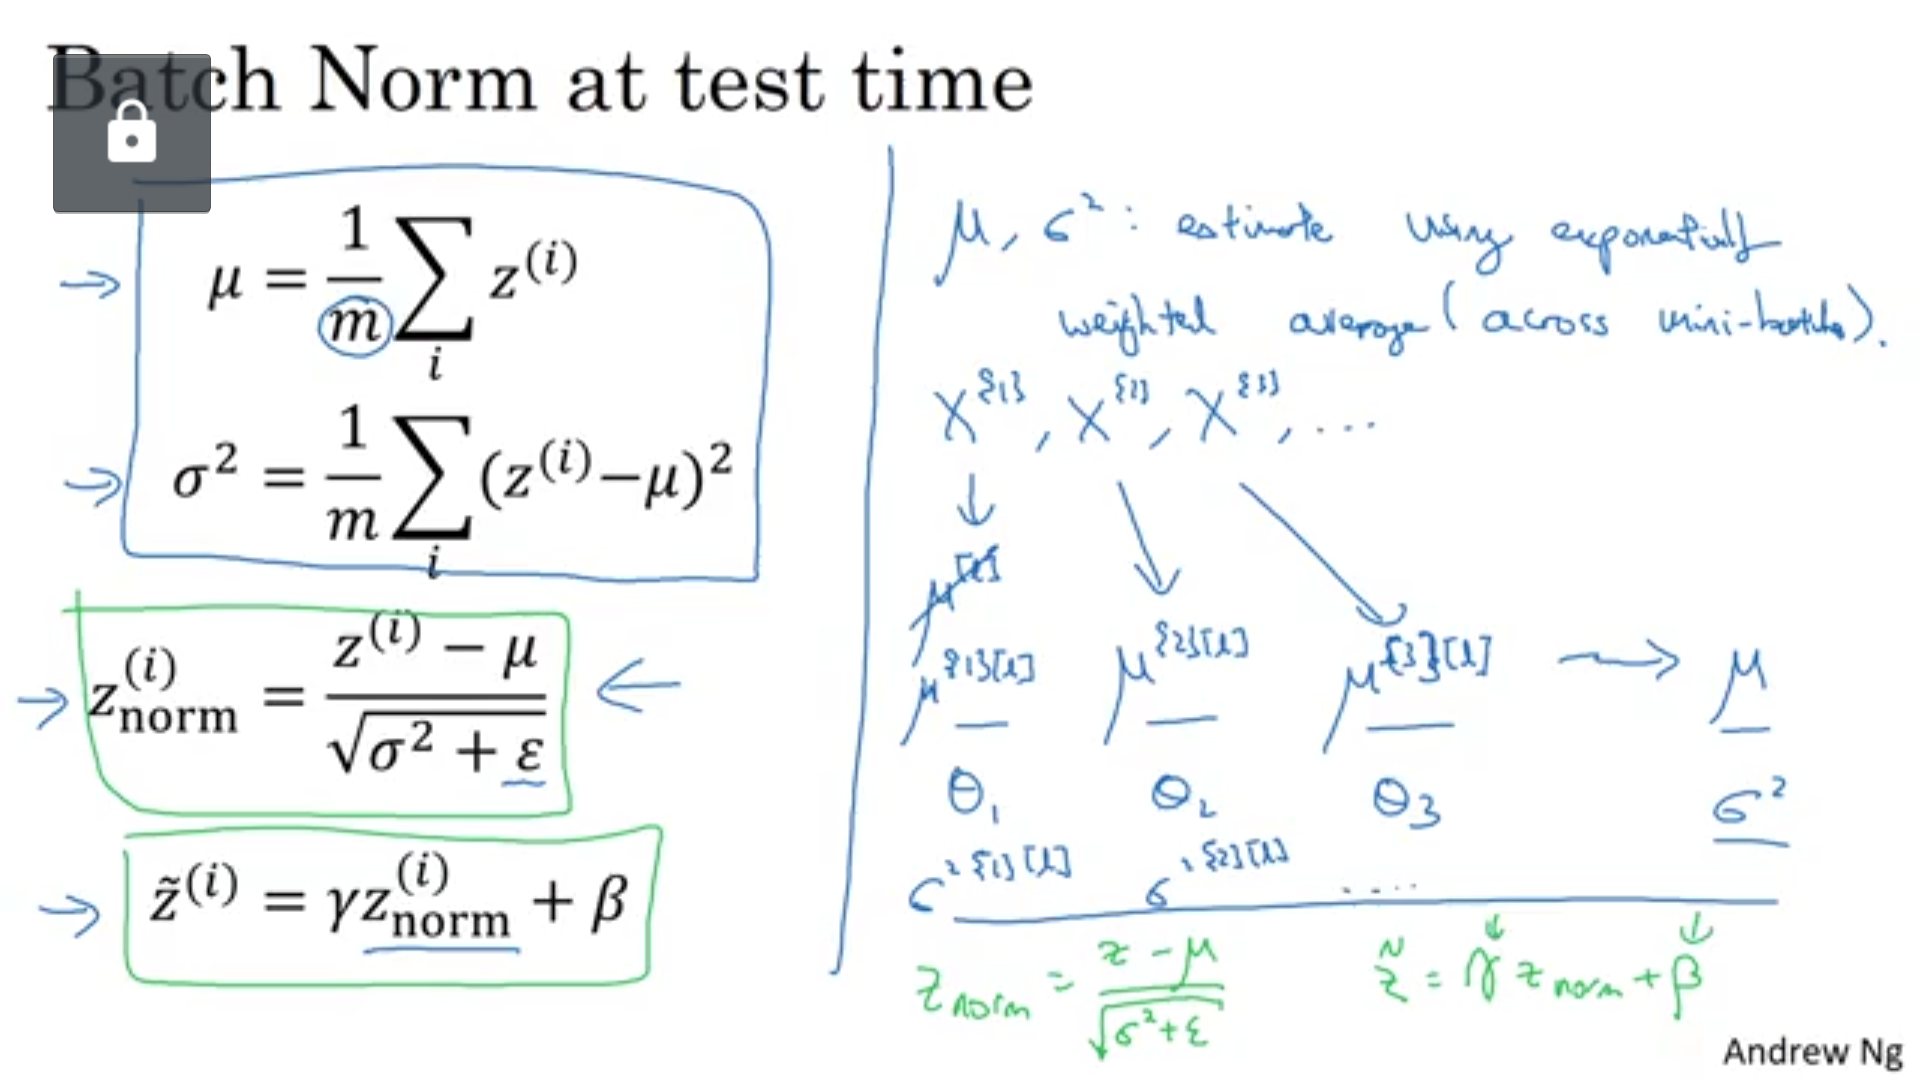 Batch Norm at test time
μ = 1/m ∑_i z^(i)
σ² = 1/m ∑_i (z^(i)−μ)²
z_norm^(i) = (z^(i) − μ) / √(σ² + ε)
z̃^(i) = γz_norm^(i) + β
μ, σ² : estimate using exponentially
weighted average (across mini-batches).
X^{1}, X^{2}, X^{3}, ...
μ^[l]
μ^{1}[l] μ^{2}[l] μ^{3}[l] → μ
θ₁ θ₂ θ₃ σ²
σ²^{1}[l] σ²^{2}[l] ....
z_norm = (z − μ) / √(σ² + ε) z̃ = γ z_norm + β
Andrew Ng